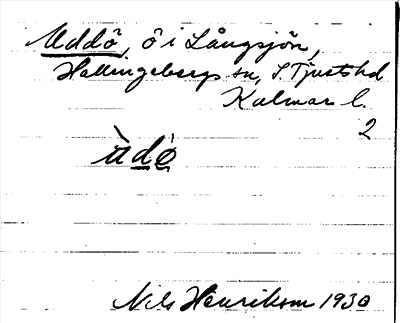 Uddö, ö i Långsjön,
Hallingebergs sn, S. Tjusts hd
Kalmar l.
2
ùdǿ
Nils Henrikson 1930